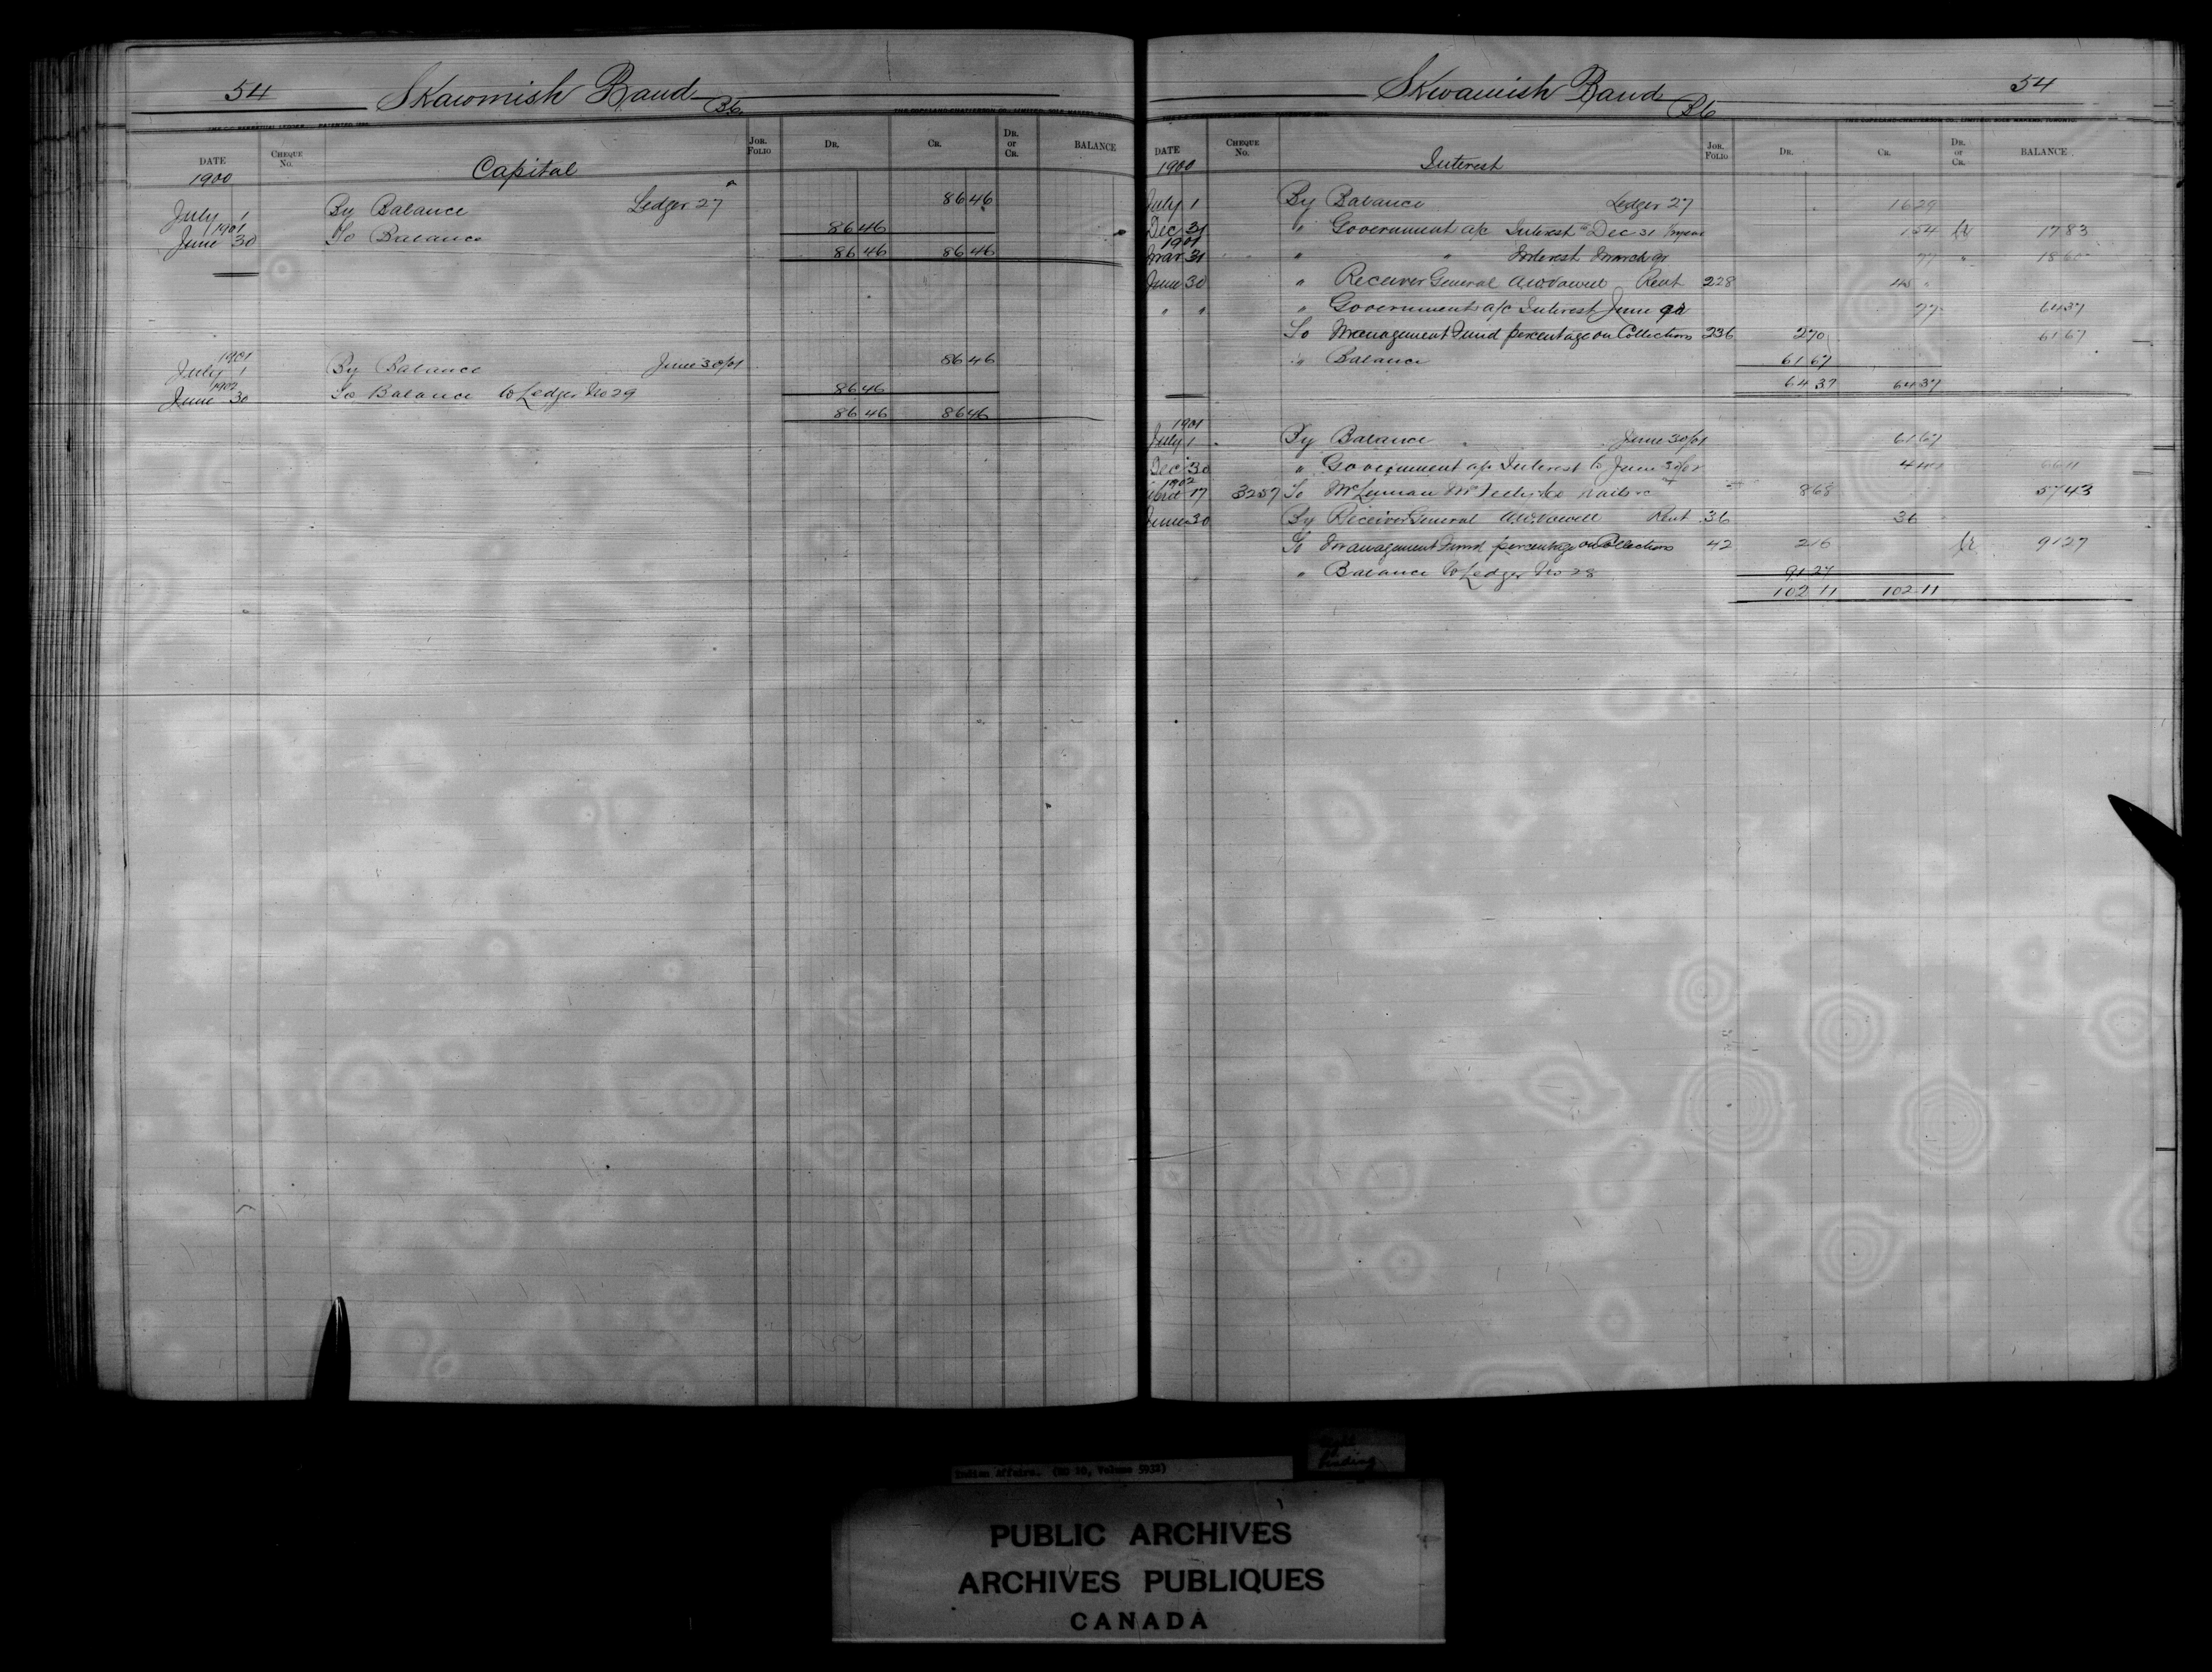 54 Skawmish Band B6
THE COPELAND-CHATTERSON CO., LIMITED, SOLE MAKERS, TORONTO
DATE CHEQUE No. Capital JOR. FOLIO DR. CR. DR. or CR. BALANCE
1900
July 1 By Balance Ledger 27 86 46
1901
June 30 To Balance 86 46
86 46 86 46
1901
July 1 By Balance June 30/01 86 46
1902
June 30 To Balance to Ledger No 29 86 46
86 46 86 46
Skwamish Band B6 54
THE COPELAND-CHATTERSON CO., LIMITED, SOLE MAKERS, TORONTO
DATE CHEQUE No. Interest JOR. FOLIO DR. CR. DR. or CR. BALANCE
1900
July 1 By Balance Ledger 27 16 29
Dec 31 " Government a/c Interest to Dec 31 1 54 Cr 17 83
1901
Mar 31 " " Interest March qr 77 " 18 60
June 30 " Receiver General A.W. Vowell Rent 228 45 "
" " " Government a/c Interest June qr 77 64 37
To Management Fund percentage on Collections 236 2 70 61 67
" Balance 61 67
64 37 64 37
1901
July 1 By Balance June 30/01 61 67
Dec 30 " Government a/c Interest to June 30/02 4 44 66 11
1902
17 3257 To McLennan McFeely & Co nails &c 8 68 57 43
June 30 By Receiver General A.W. Vowell Rent 36 36
To Management Fund percentage on Collections 42 2 16 Cr 91 27
" Balance to Ledger No 28 91 27
102 11 102 11
Indian Affairs. (RG 10, Volume 5932)
binding
PUBLIC ARCHIVES
ARCHIVES PUBLIQUES
CANADA